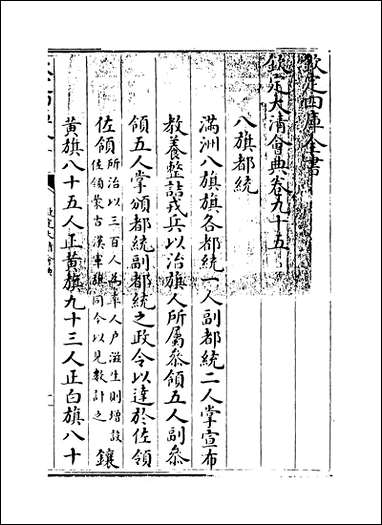 欽定四庫全書
欽定大清會典卷九十五
八旗都統
滿洲八旗旗各都統一人副都統二人掌宣布
教養整詰戎兵以治旗人所屬叅領五人副叅
領五人掌頒都統副都統之政令以達於佐領
佐領所治以三百人為率人户滋生則增設佐領蒙古漢軍旗同今以見數計之鑲
黃旗八十五人正黃旗九十三人正白旗八十